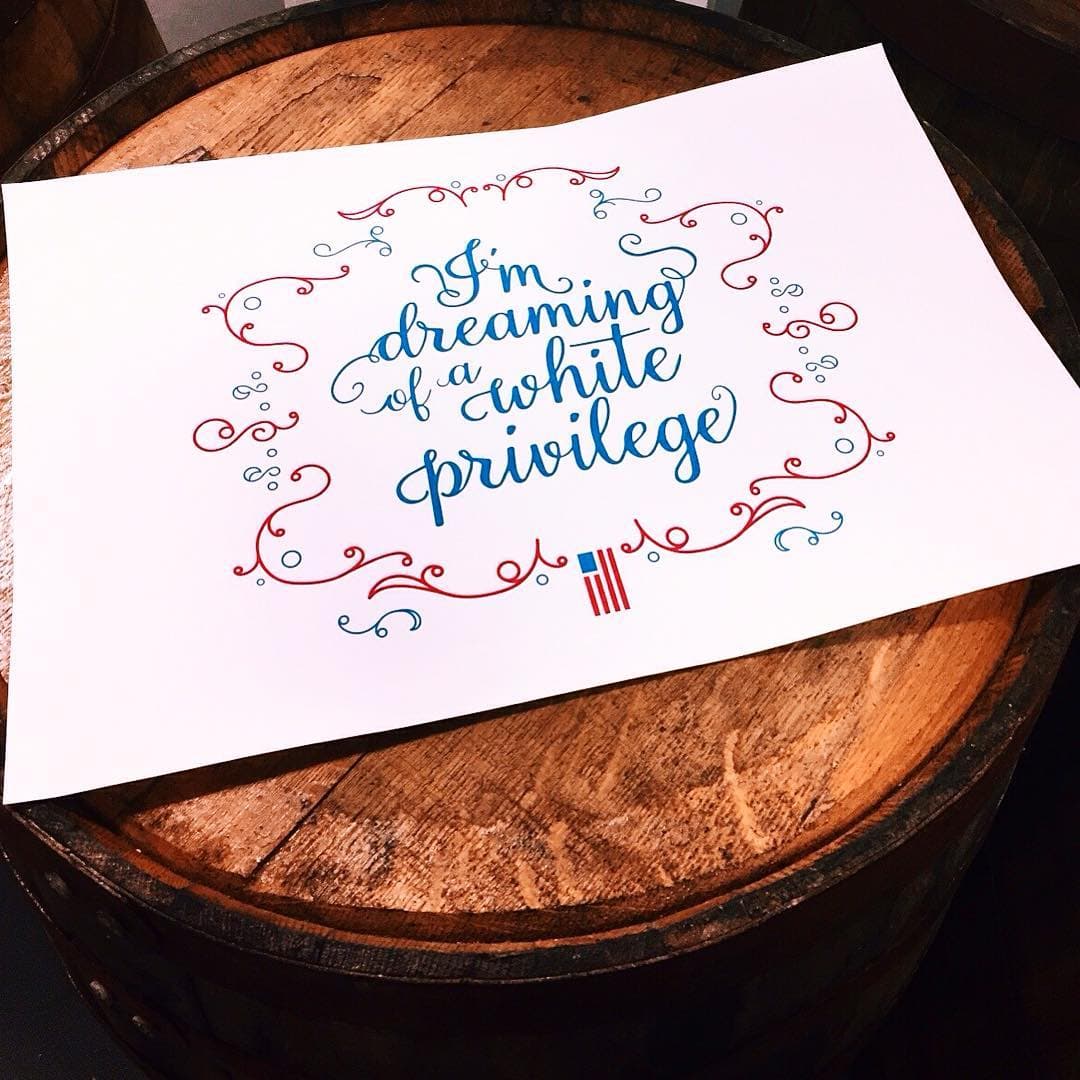 I'm
dreaming
of a white
privilege